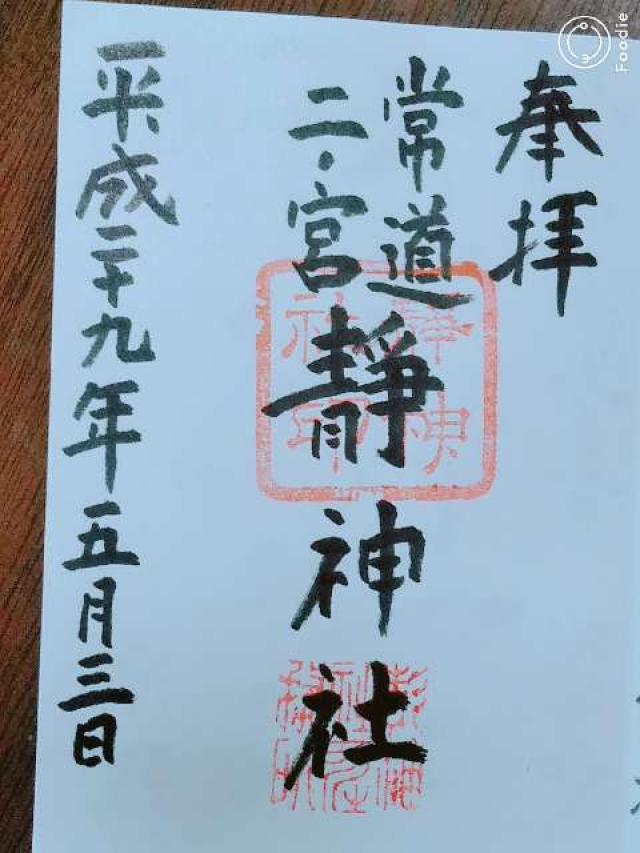 奉拝
常道
二ノ宮
靜神社
平成二十九年五月三日
靜神
社印
Foodie